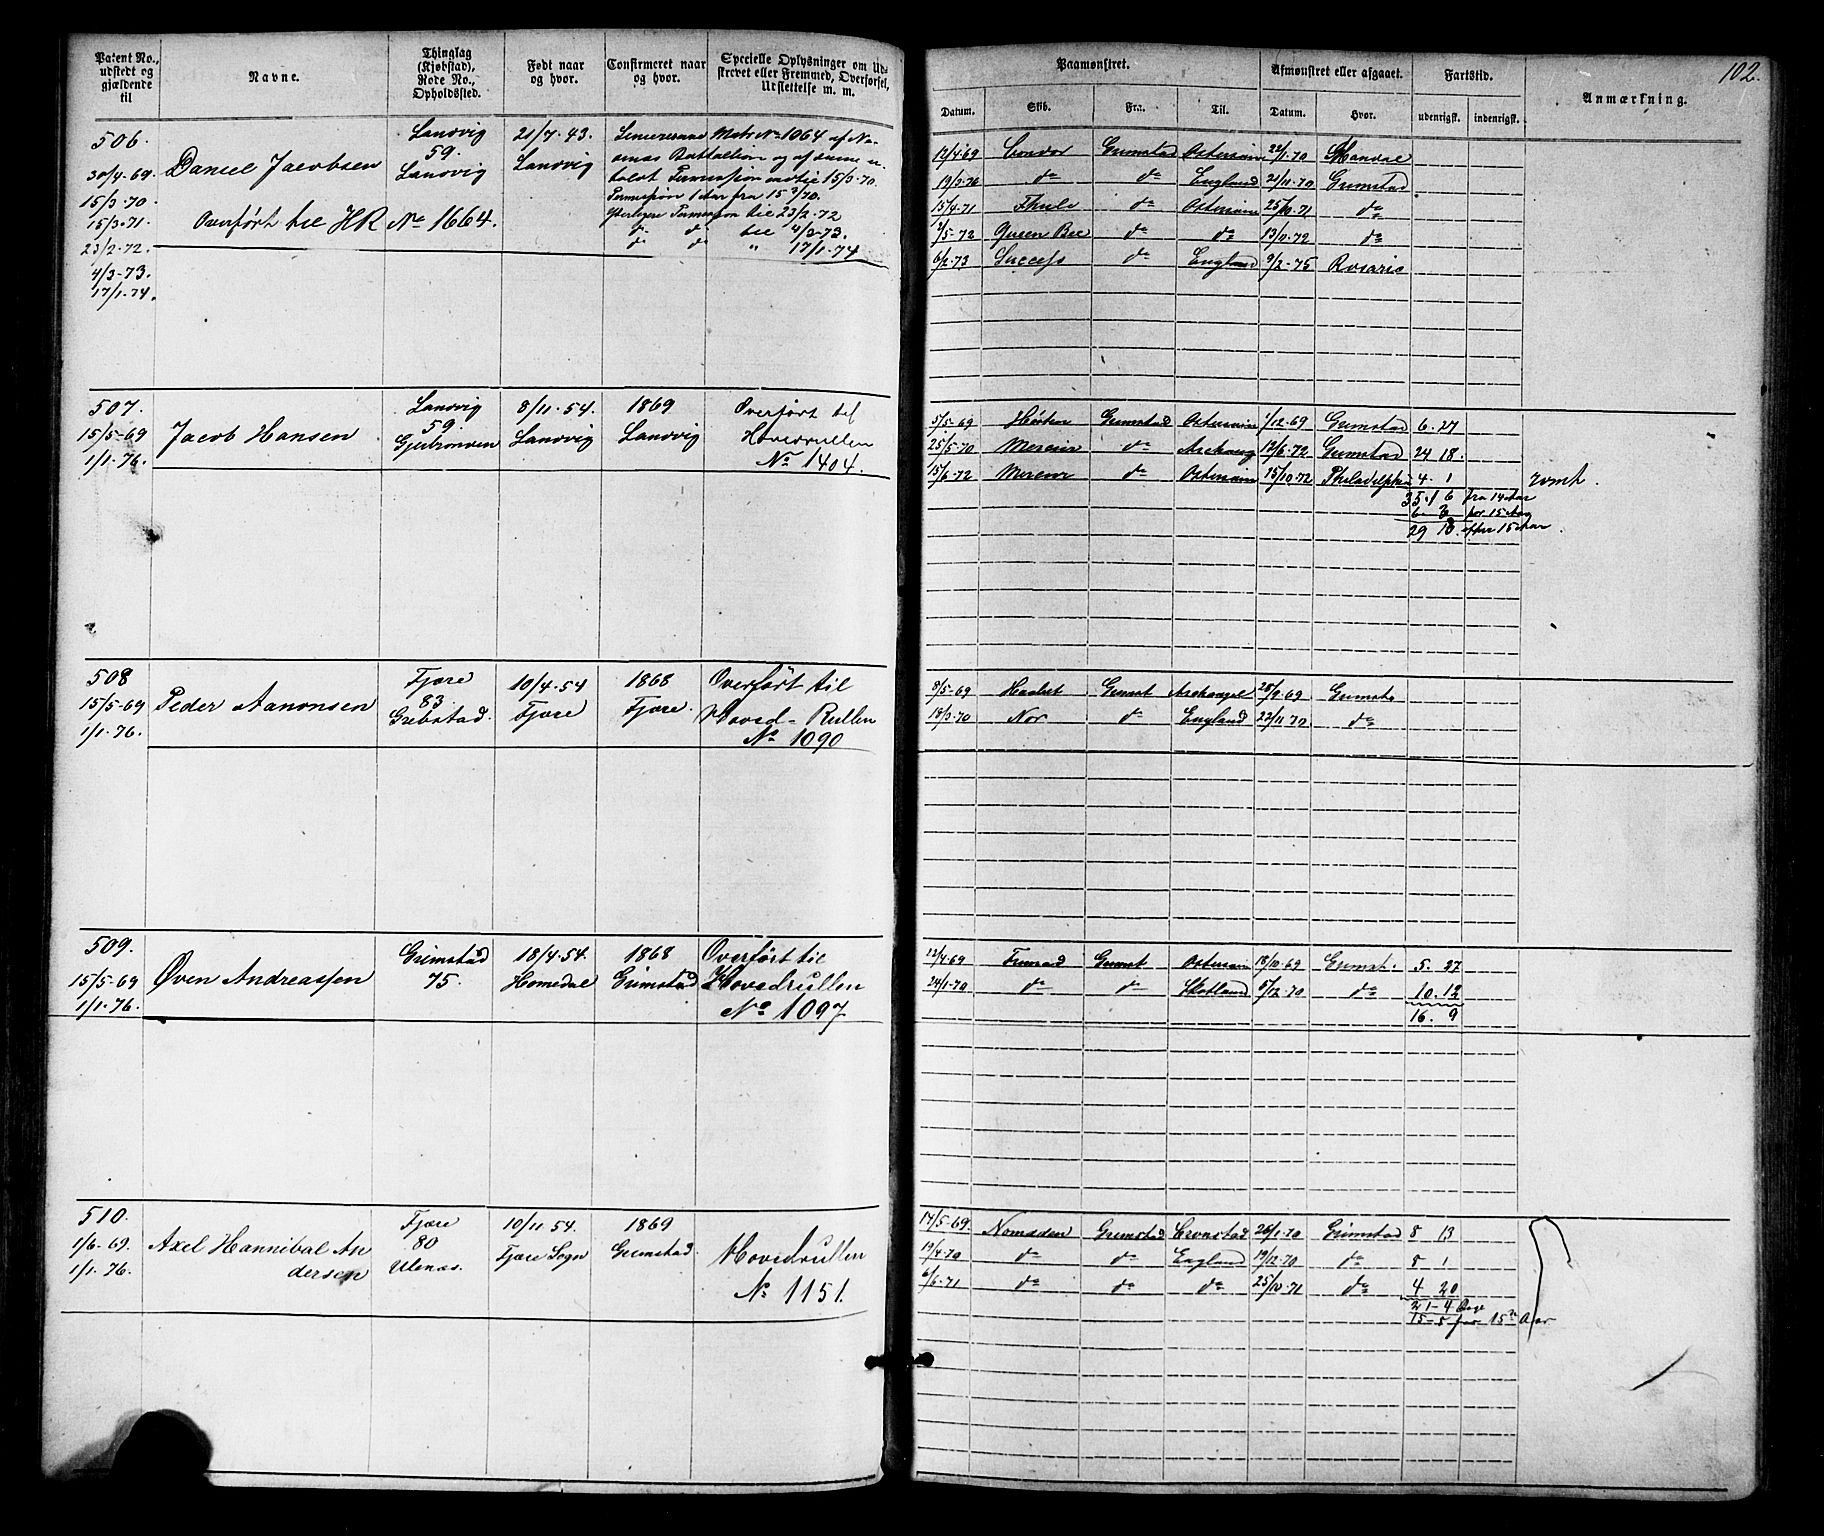 102.
Patent No., udstedt og gjældende til
Navne.
Thinglag (Kjøbstad), Rode No., Opholdssted.
Født naar og hvor.
Confirmeret naar og hvor.
Specielle Oplysninger om Udskrevet eller Fremmed, Overførsel, Udslettelse m. m.
Paamønstret.
Afmønstret eller afgaaet.
Fartstid.
Anmærkning.
Datum. Skib. Fra. Til. Datum. Hvor. udenrigsk. indenrigsk.
506.
30/4-69.
15/3-70.
15/3-71.
23/2-72.
4/3-73.
17/1-74.
Daniel Jacobsen
Overført til HR No 1664.
Landvig
59.
Landvig
21/7.43.
Landvig
Matr No 1064 af
Battallion og af samme
Permission indtil 15/3-70.
Permission 1 Aar fra 15/3/70.
Yderligere Permission til 23/2-72
do do til 4/3-73.
do do " 17/1-74
12/4-69 Condor Grimstad Østersøin 22/1-70 Mandal
19/3-70 do do England 21/11-70 Grimstad
15/4-71 Thule do Østersøin 25/10-71 do
2/5-72 Queen Bee do do 13/9-72 do
6/2-73 Success do England 9/2-75 Rosario
507.
15/5-69
1/1-76.
Jacob Hansen
Landvig
59.
8/11-54.
Landvig
1869
Landvig
Overført til
Hovedrullen
No 1404.
5/5-69 Grimstad Østersøin 1/12-69 Grimstad 6. 27
25/5-70 do Archang 12/6-72 Grimstad 24 18.
15/6-72 do Østersøin 15/10-72 Philadelphia 4. 1 rømt.
35.16 fra 14 Aar
6. 3 før 15 Aar
29 13. efter 15 Aar
508
15/5-69
1/1-76.
Peder Aanonsen
Fjære
83
Grebstad.
10/4-54
Fjære
1868
Fjære.
Overført til
Hoved-Rullen
No 1090
8/5-69 Grimst Archangel 28/9-69 Grimsta
18/3-70 Nor do England 22/11-70 do
509.
15/5-69
1/1-76.
Øven Andreassen
Grimstad
75.
18/4-54.
Homedal
1868
Grimstad
Overført til
Hovedrullen
No 1097
22/4-69 Grimst Østersøin 18/10-69 Grimst. 5. 27
24/1-70 do do Skotland 6/12-70 do 10.12
16. 9
510.
1/6-69.
1/1-76.
Axel Hannibal An
dersen
Fjære
80
Ulenæs.
10/11-54.
Fjære Sogn
1869
Grimstad.
Hovedrullen
No 1151.
14/5-69. Nomaden Grimstad Cronstad 26/1-70 Grimstad 8 13
19/4-70 do do England 19/12-70 do 8 1
6/6-71 do do do 25/10-71 do 4 20
21-4 Dage
15-5 før 15de Aar